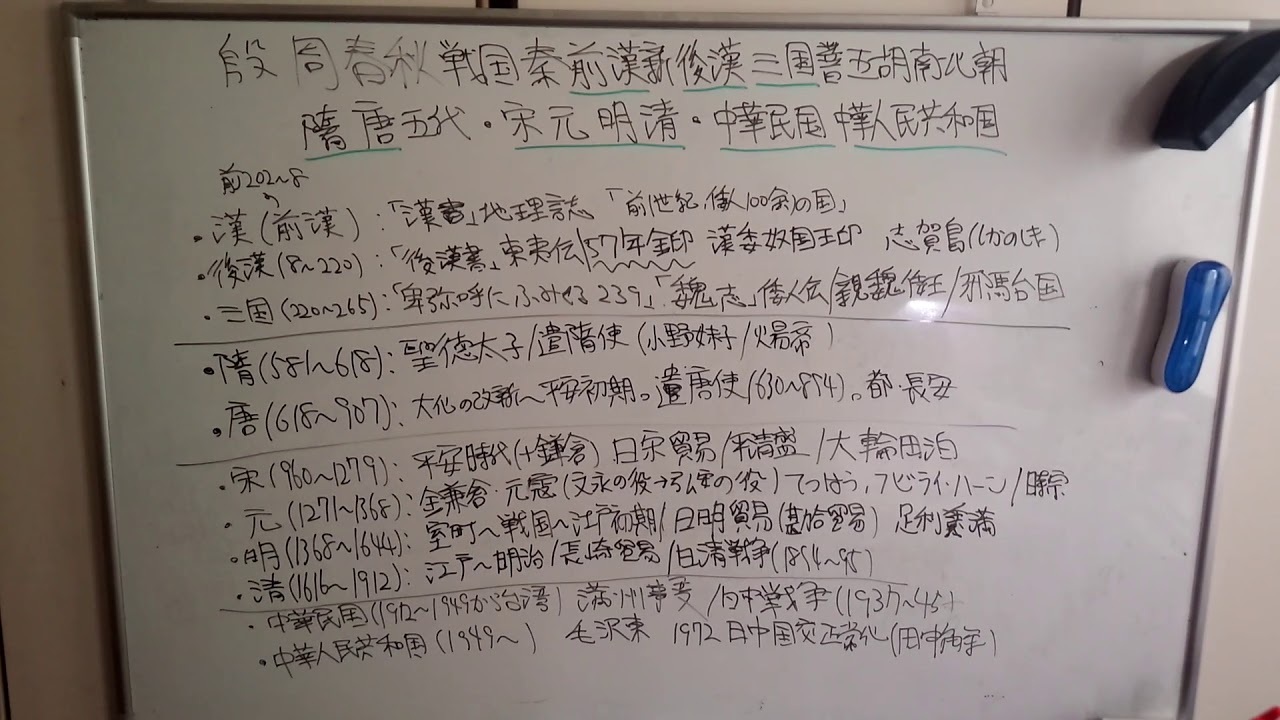 殷 周春秋戦国秦前漢新後漢三国晋五胡南北朝
隋唐五代・宋元明清・中華民国 中華人民共和国
前202〜8
・漢(前漢):「漢書」地理誌 「前1世紀、倭人100余りの国」
・後漢(8〜220):「後漢書」東夷伝/57年金印 漢委奴国王印 志賀島(しかのしま)
・三国(220〜265):「卑弥呼にふみくる239」「魏志」倭人伝/親魏倭王/邪馬台国
・隋(581〜618):聖徳太子/遣隋使(小野妹子/煬帝)
・唐(618〜907):大化の改新〜平安初期。遣唐使(630〜894)。都・長安
・宋(960〜1279):平安時代(+鎌倉)日宋貿易/平清盛/大輪田泊
・元(1271〜1368):鎌倉・元寇(文永の役→弘安の役)てつはう,フビライ・ハーン/
・明(1368〜1644):室町〜戦国〜江戸初期/日明貿易(勘合貿易)足利義満
・清(1616〜1912):江戸〜明治/長崎貿易/日清戦争(1894〜95)
・中華民国(1912〜1949から台湾)満州事変/日中戦争(1937〜45)
・中華人民共和国(1949〜) 毛沢東 1972日中国交正常化(田中角栄)